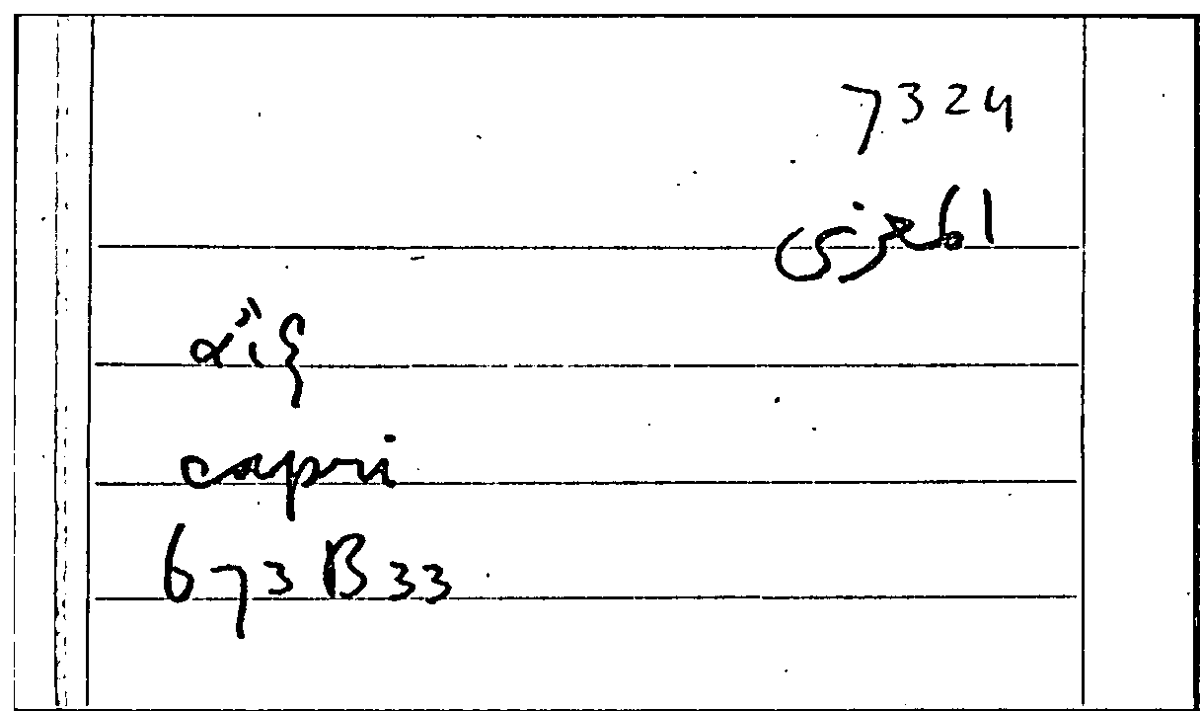 7324
المعزى
αἴξ
capri
673 B 33